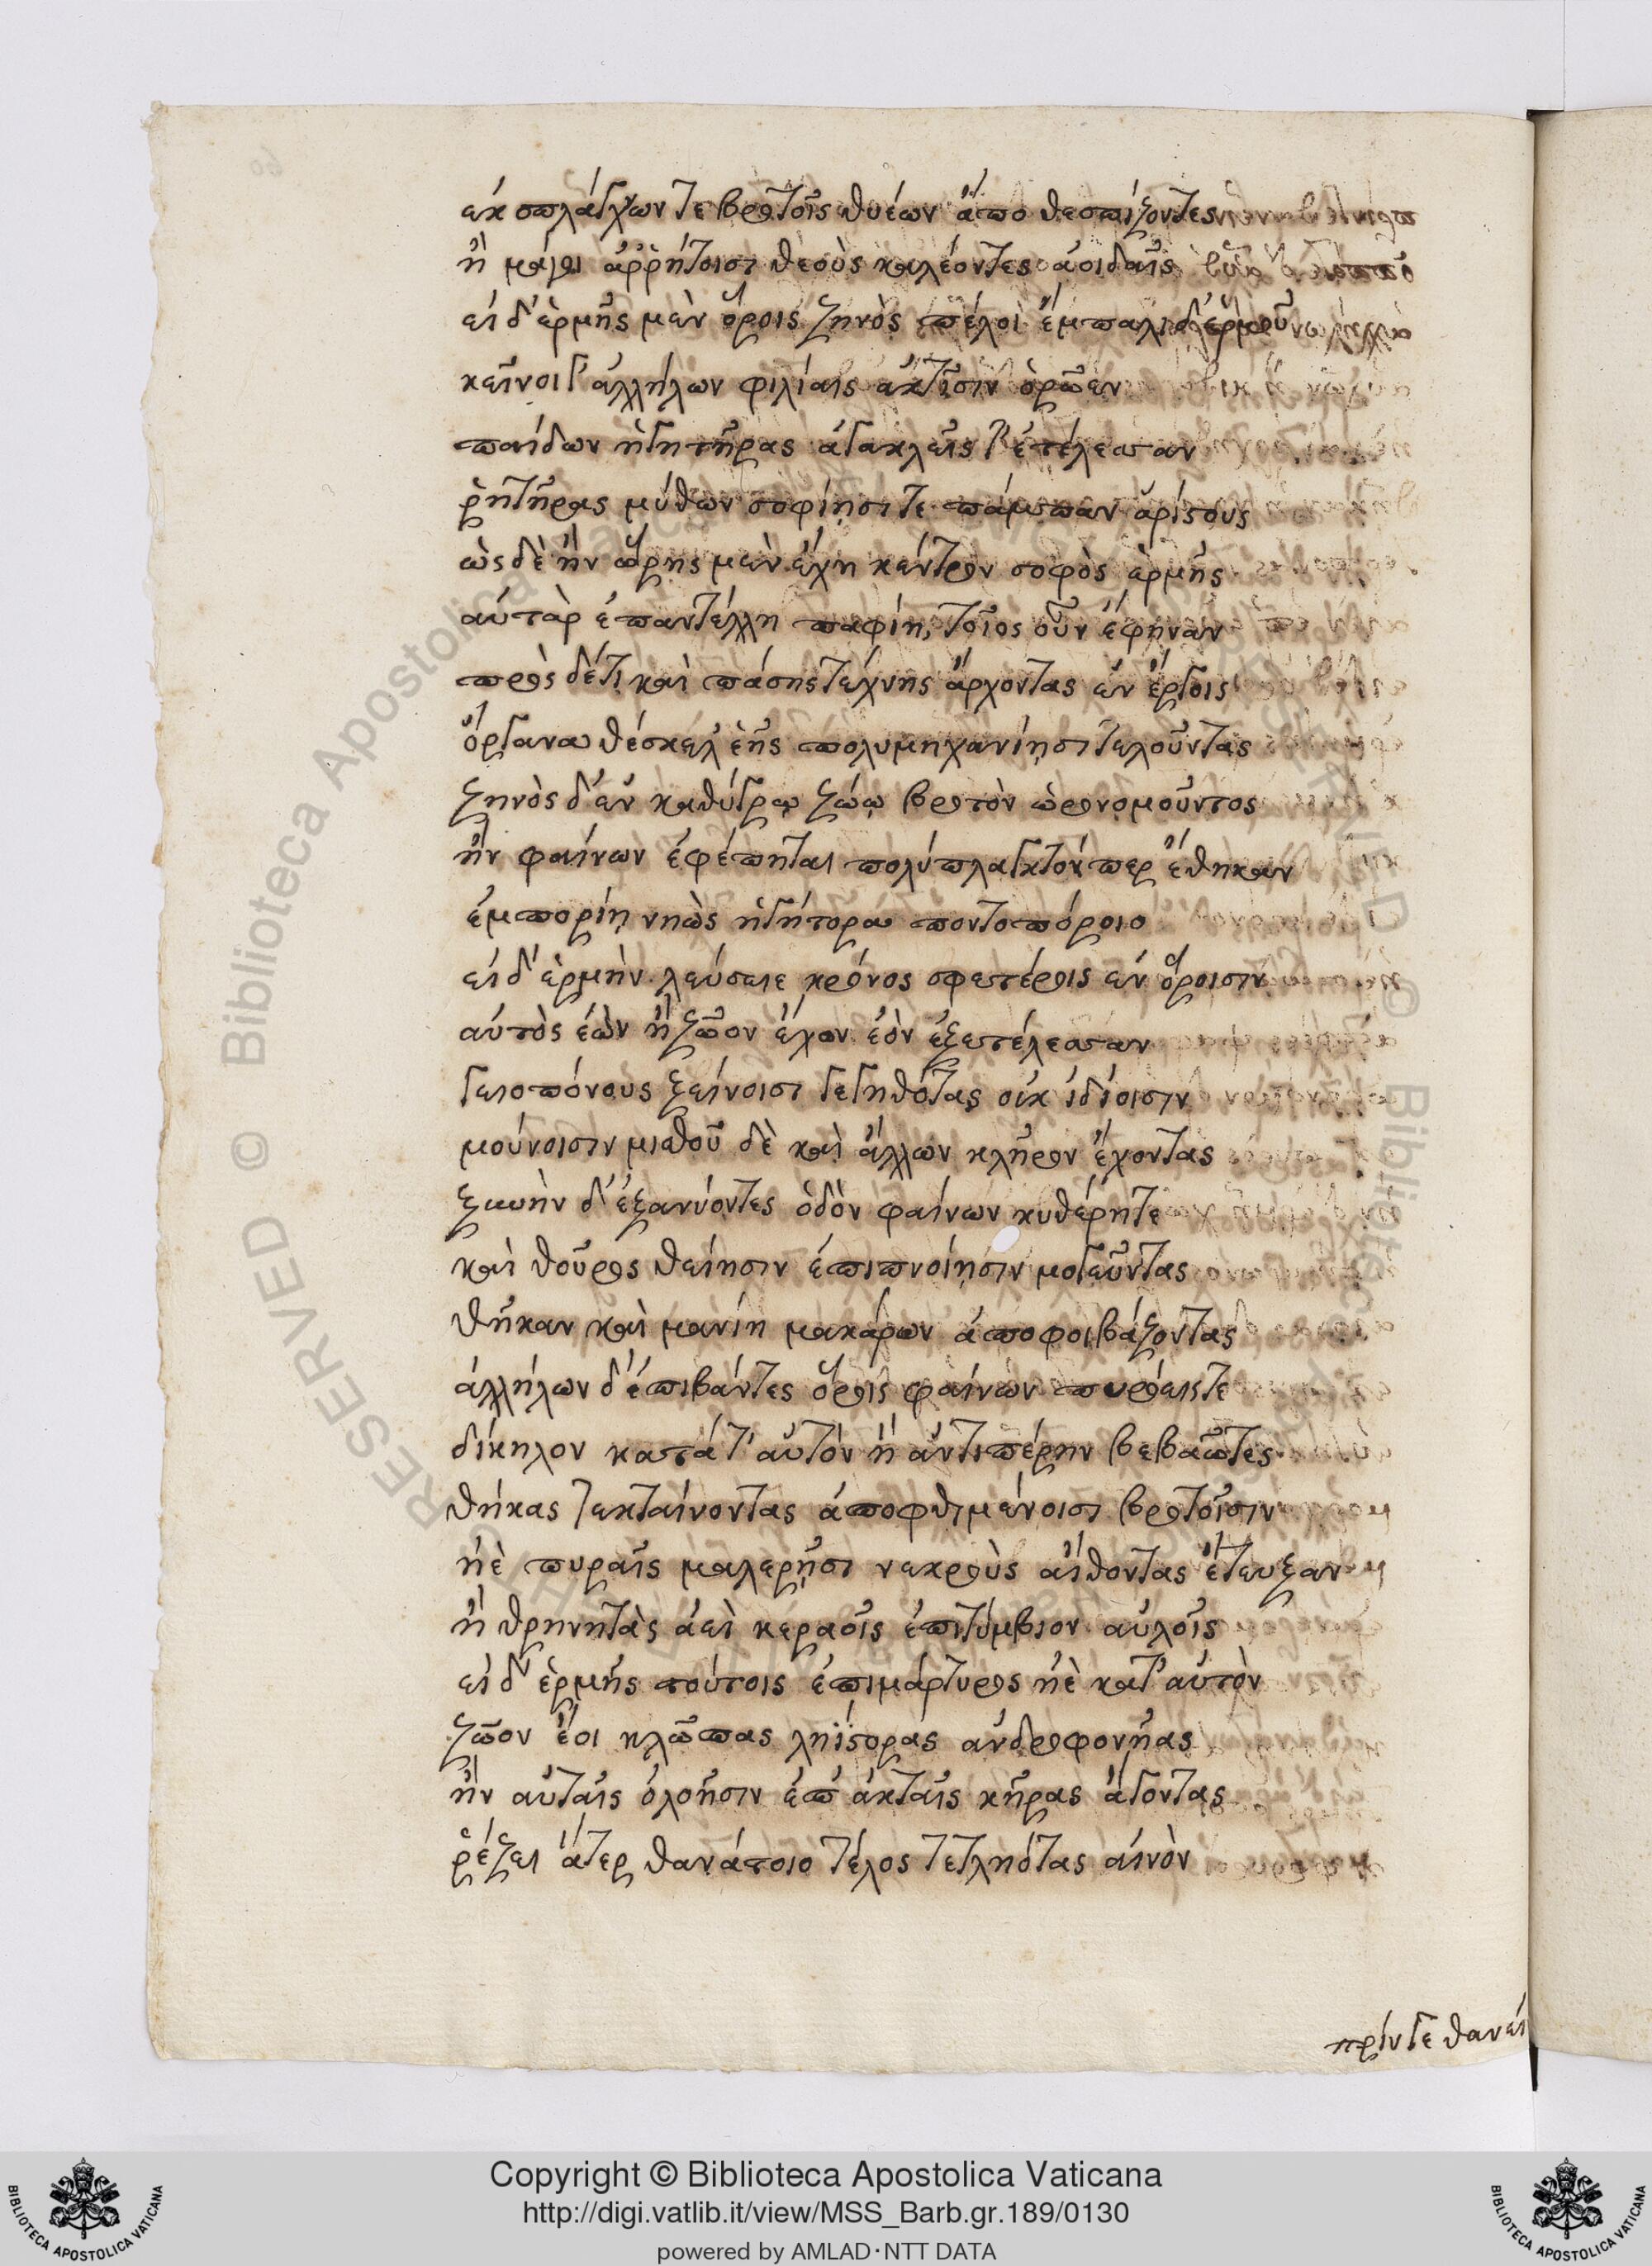 ἐκ σπλάγχων τε βροτοῖς θυέων ἄπο θεσπίζοντες
ἢ μάγοι ἀῤῥήτοισι θεοὺς καλέοντες ἀοιδαῖς
εἰ δ' ἑρμῆς μὲν ὅροις ζηνὸς πέλοι ἔμπαλι δ' ἑρμοῦ
κεῖνοι γ' ἀλλήλων φιλίαις ἀκτῖσιν ὁρῷεν
παίδων ἡγητῆρας ἀγακλεῖς τ' ἐτέλεσαν
ῥητῆρας μύθων σοφίῃσί τε πάμπαν ἀρίστους
ὡς δὲ ἢν ἄρης μὲν ἔχη κέντρον σοφὸς ἑρμῆς
αὐτὰρ ἐπαντέλλη παφίη, τοῖος οὖν ἔφηναν
πρὸς δ' ἔτι καὶ πάσης τέχνης ἄρχοντας ἐν ἔργοις
ὄργανα θέσκελ' ἑῆς πολυμηχανίῃσι τελοῦντας
ζηνὸς δ' ἐν καθύγρῳ ζώῳ βροτὸν ὡρονομοῦντος
ἢν φαίνων ἐφέπηται πολύπλαγκτόν περ ἔθηκαν
ἐμπορίῃ νηὼς ἡγήτορα ποντοπόροιο
εἰ δ' ἑρμὴν λεύσειε κρόνος σφετέροις ἐν ὅροισιν
αὐτὸς ἐὼν ἢ ζῶον ἔχον ἑὸν ἐξετέλεσαν
γειοπόνους ξείνοισι γεγηθότας οὐκ ἰδίοισιν
μούνοισιν μισθοῦ δὲ καὶ ἄλλων κλῆρον ἔχοντας
ξυνὴν δ' ἐξανύοντες ὁδὸν φαίνων κυθέρητε
καὶ θοῦρος θείησιν ἐπιπνοίῃσιν μογεῦντας
θῆκαν καὶ μανίῃ μακάρων ἀποφοιβάζοντας
ἀλλήλων δ' ἐπιβάντες ὅροις φαίνων πυρόεις τε
δίκηλον κατά τ' αὐτὸν ἢ ἀντιπέρην βεβαῶτες
θήκας τεκταίνοντας ἀποφθιμένοισι βροτοῖσιν
ἠὲ πυραῖς μαλερῇσι νεκροὺς αἴθοντας ἔτευξαν
ἢ θρηνητὰς ἀεὶ κεραοῖς ἐπιτύμβιον αὐλοῖς
εἰ δ' ἑρμῆς τούτοις ἐπιμάρτυρος ἠὲ κατ' αὐτὸν
ζῶον ἔοι κλῶπας ληΐστορας ἀνδροφονῆας
ἢν αὐταῖς ὀλοῇσιν ἐπ' ἀκταῖς κῆρας ἄγοντας
ῥέζει ἄτερ θανάτοιο τέλος τετληότας αἰνὸν
πρίν γε θανέι
Copyright © Biblioteca Apostolica Vaticana
http://digi.vatlib.it/view/MSS_Barb.gr.189/0130
powered by AMLAD·NTT DATA